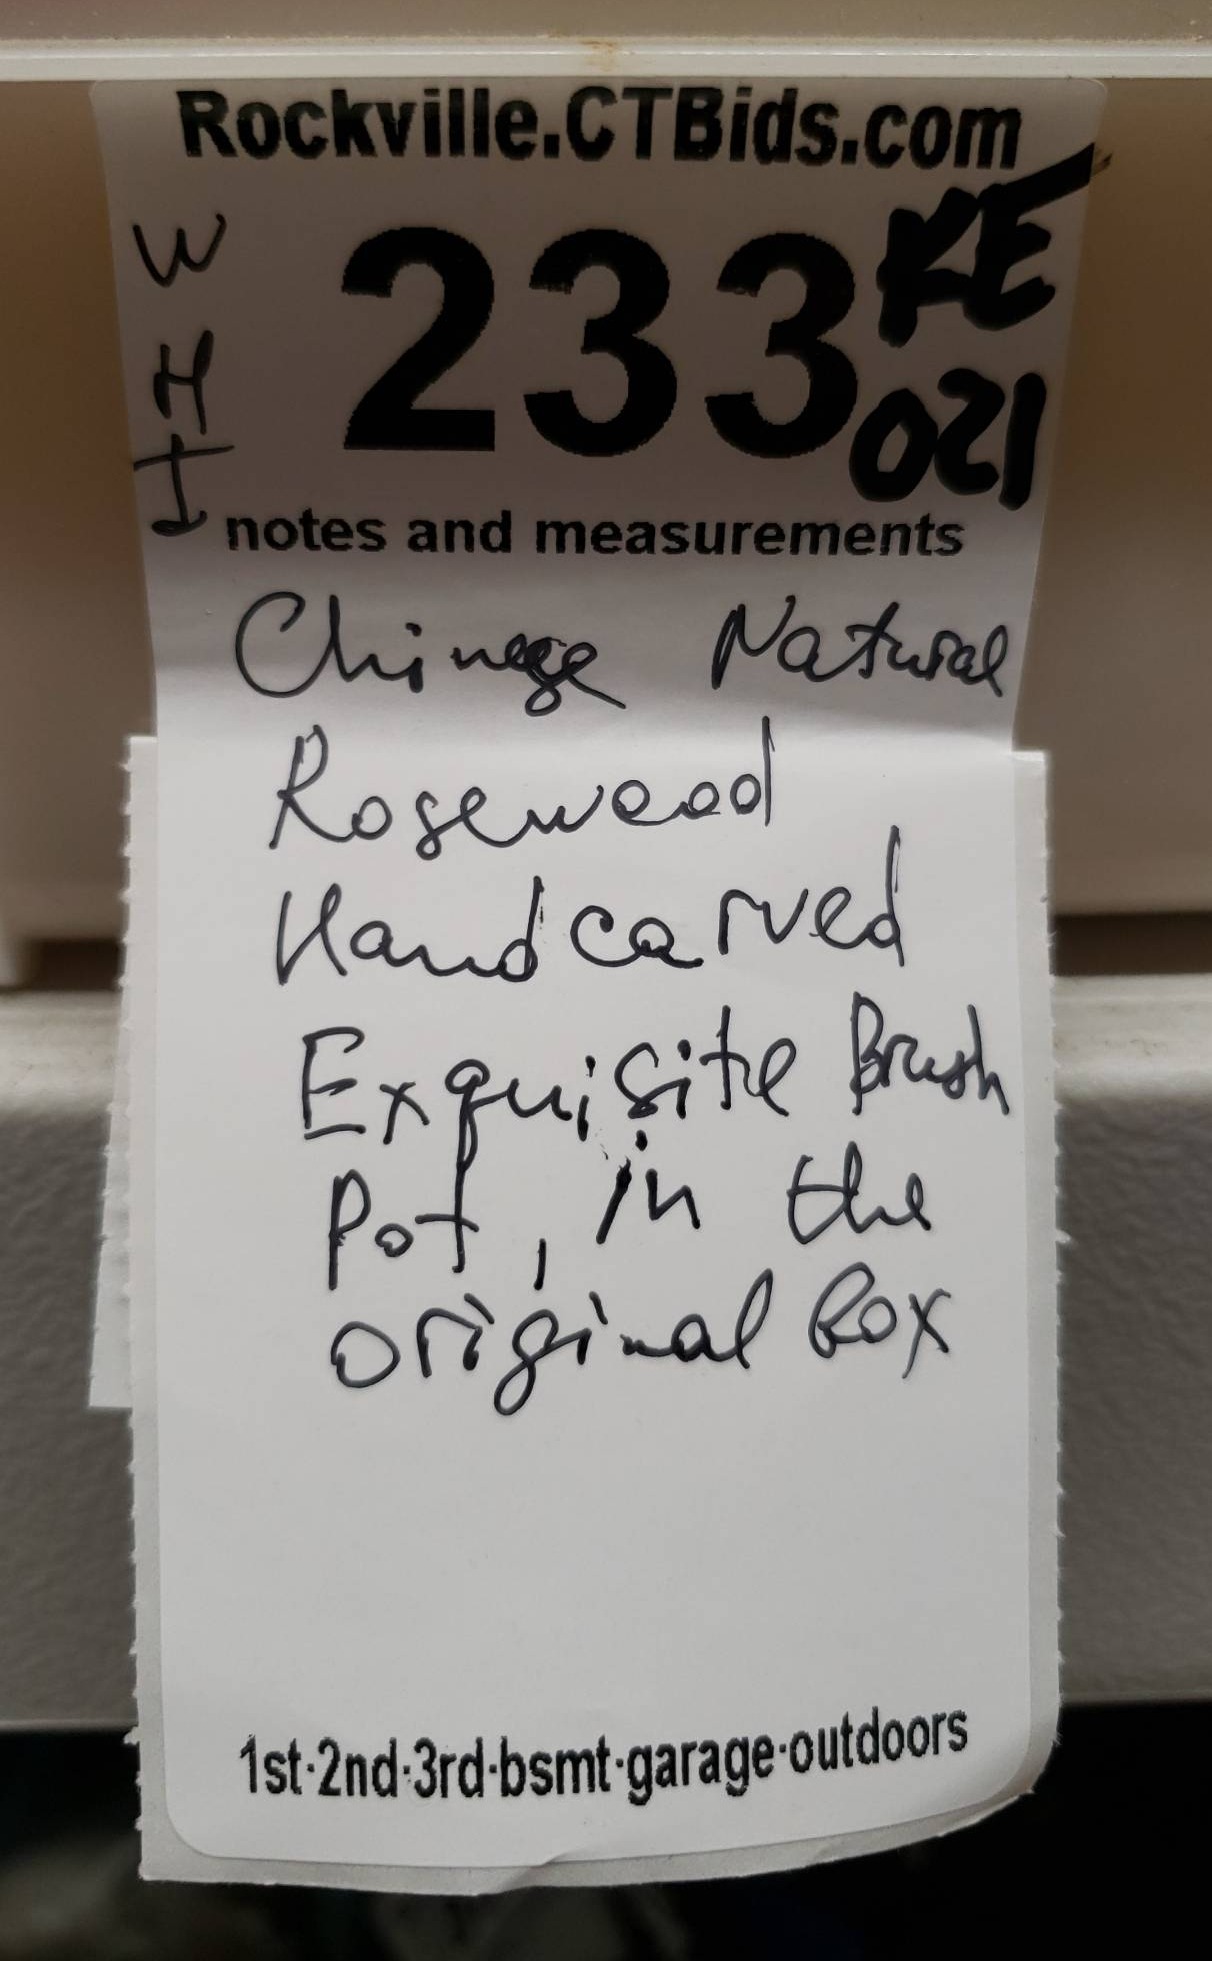 Rockville.CTBids.com
233
KE
021
notes and measurements
Chinese Natural
Rosewood
Handcarved
Exquisite Brush
Pot, in the
original box
1st·2nd·3rd·bsmt·garage·outdoors